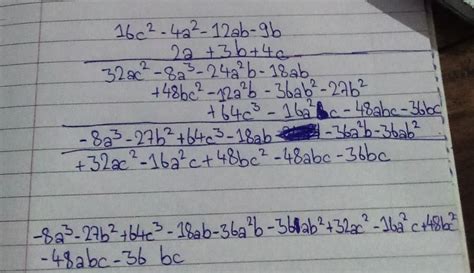 16c² - 4a² - 12ab - 9b
2a + 3b + 4c
32ac² - 8a³ - 24a²b - 18ab
+ 48bc² - 12a²b - 36ab² - 27b²
+ 64c³ - 16a²c - 48abc - 36bc
- 8a³ - 27b² + 64c³ - 18ab - 36a²b - 36ab²
+ 32ac² - 16a²c + 48bc² - 48abc - 36bc
-8a³ - 27b² + 64c³ - 18ab - 36a²b - 36ab² + 32ac² - 16a²c + 48bc²
- 48abc - 36 bc